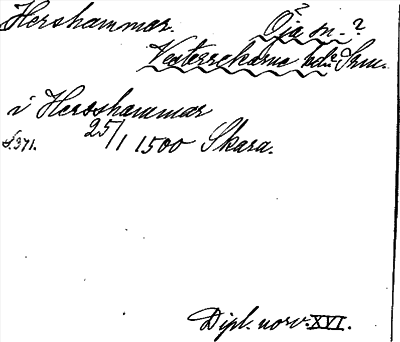 Hershammar. Öja sn. ?
Vesterrekarne Srm.
i Hersshammar
s. 371. 25/1 1500 Skara.
Dipl. norv. XVI.